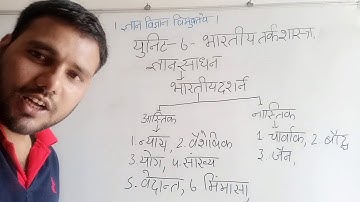 । ज्ञान विज्ञान विमुक्तये ।
युनिट-6- भारतीय तर्कशास्त्र.
ज्ञान साधन
भारतीयदर्शन
आस्तिक नास्तिक
1. न्याय, 2. वैशेषिक 1. चार्वाक, 2. बौद्ध
3. योग, 4. सांख्य 3. जैन.
5. वेदान्त, 6 मिमांसा